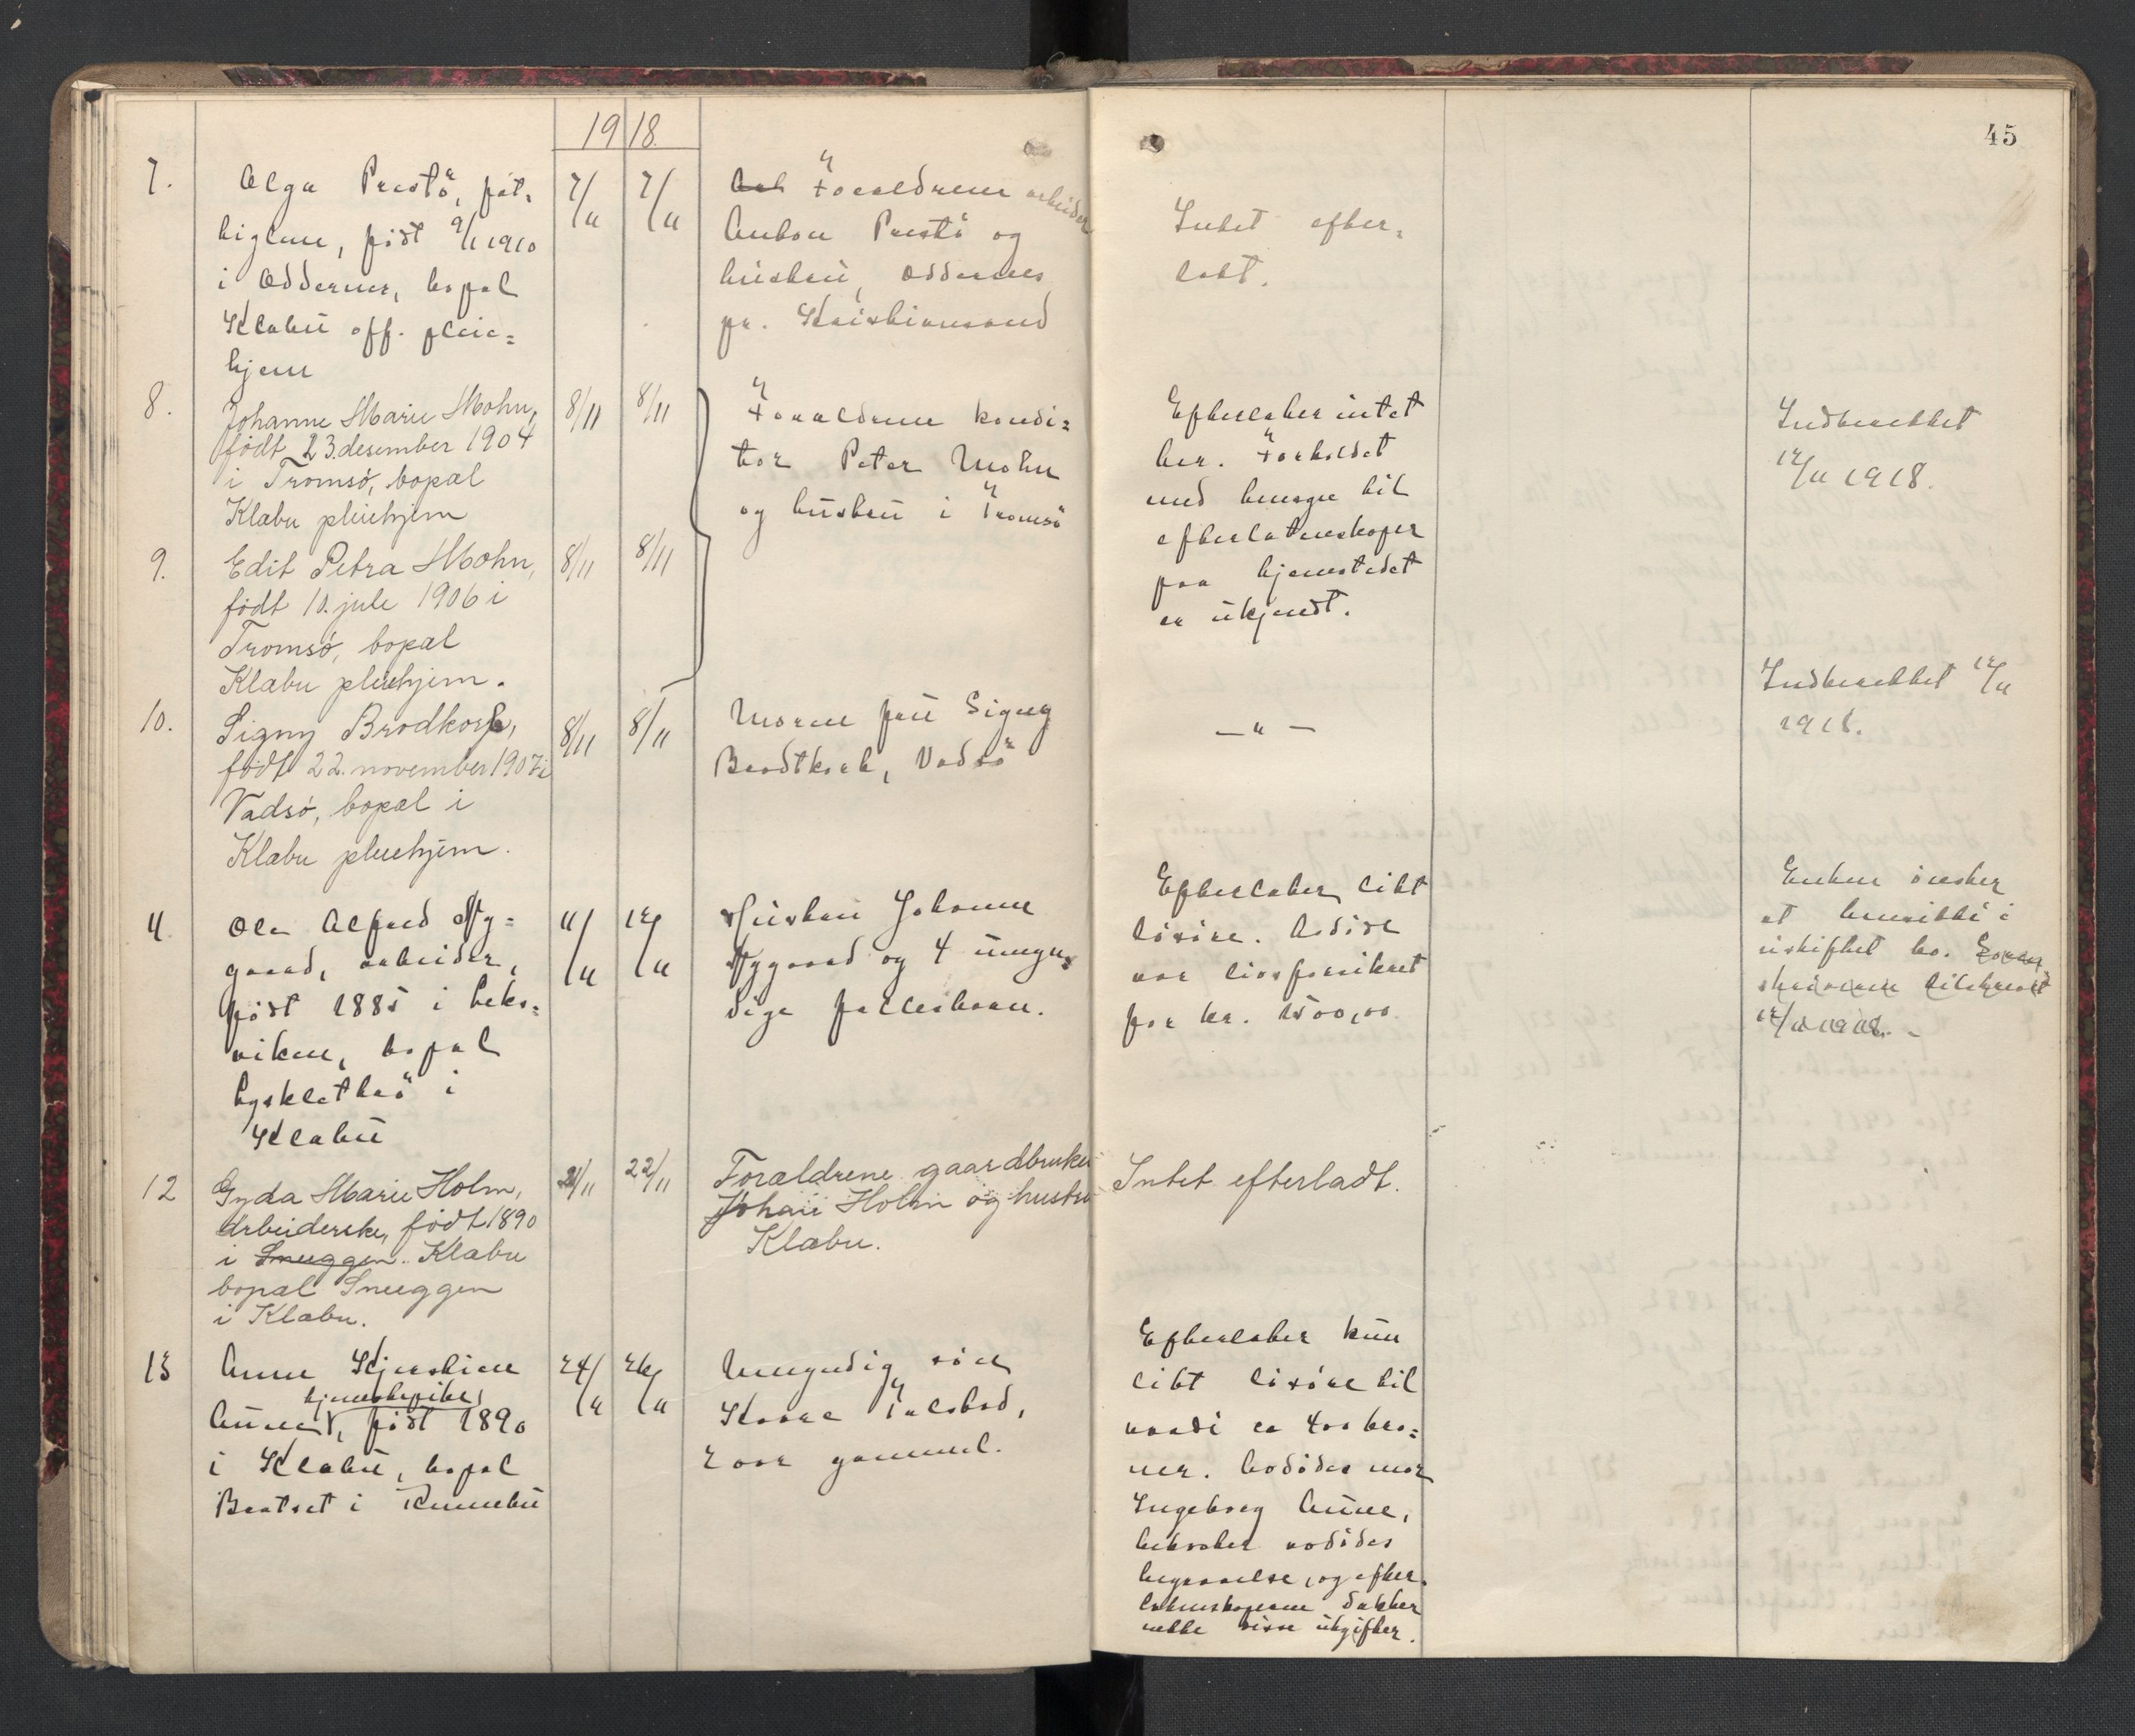 45
1918.
7.
Olga Prestö, fat-
tiglem, födt 9/1 1910
i Oddernes, bopæl
Klæbu off. pleie-
hjem
7/11
7/11
Forældrene arbeider
Anton Prestö og
hustru, Oddernes
pr. Kristianssand
Intet efter-
latt.
8.
Johanne Marie Mohn,
födt 23. desember 1904
i Tromsö, bopæl
Klæbu pleiehjem
8/11
8/11
Forældrene kondi-
tor Peter Mohn
og hustru i Tromsö
Efterlater intet
her. Forholdet
med hensyn til
efterlatenskaper
paa hjemstedet
er ukjendt.
Indberettet
12/11 1918.
9.
Edit Petra Mohn,
födt 10. jule 1906 i
Tromsö, bopæl
Klæbu pleiehjem.
8/11
8/11
10.
Signy Brodkorb,
födt 22. november 1907 i
Vadsö, bopæl i
Klæbu pleiehjem.
8/11
8/11
Moren fru Signy
Brodtkorb, Vadsö
— " —
Indberettet 12/11
1918.
11.
Ole Alfred Ny-
gaard, arbeider,
födt 1885 i Leks-
viken, bopæl
Lysklethaö i
Klæbu
11/11
12/11
Hustru Johanne
Nygaard og 4 umyn-
dige fællesbarn.
Efterlater litt
lösöre. Avdöde
var livsforsikret
for kr. 1500,00.
Enken önsker
at hensitte i
uskiftet bo. Soren-
skriveren tilskrevet
12/11 1918. -
12
Gyda Marie Holm,
arbeiderske, födt 1890
i Snuggen. Klæbu
bopæl Snuggen
i Klæbu.
21/11
22/11
Forældrene gaardbruker
Johan Holm og hustru
Klæbu.
Intet efterladt.
13
Anne Kjerstine
hjemmehepike,
Aunet, födt 1890
i Klæbu, bopæl
Bratset i Rennebu
24/11
26/11
Umyndig sön
Kaare Tulsbad,
2 aar gammel.
Efterlater kun
litt lösöre til
værdi ca 400 kro-
ner. Avdödes mor
Ingeborg Aune,
bekoster avdödes
begravelse, og efter-
latenskaperne dækker
neppe disse utgifter.